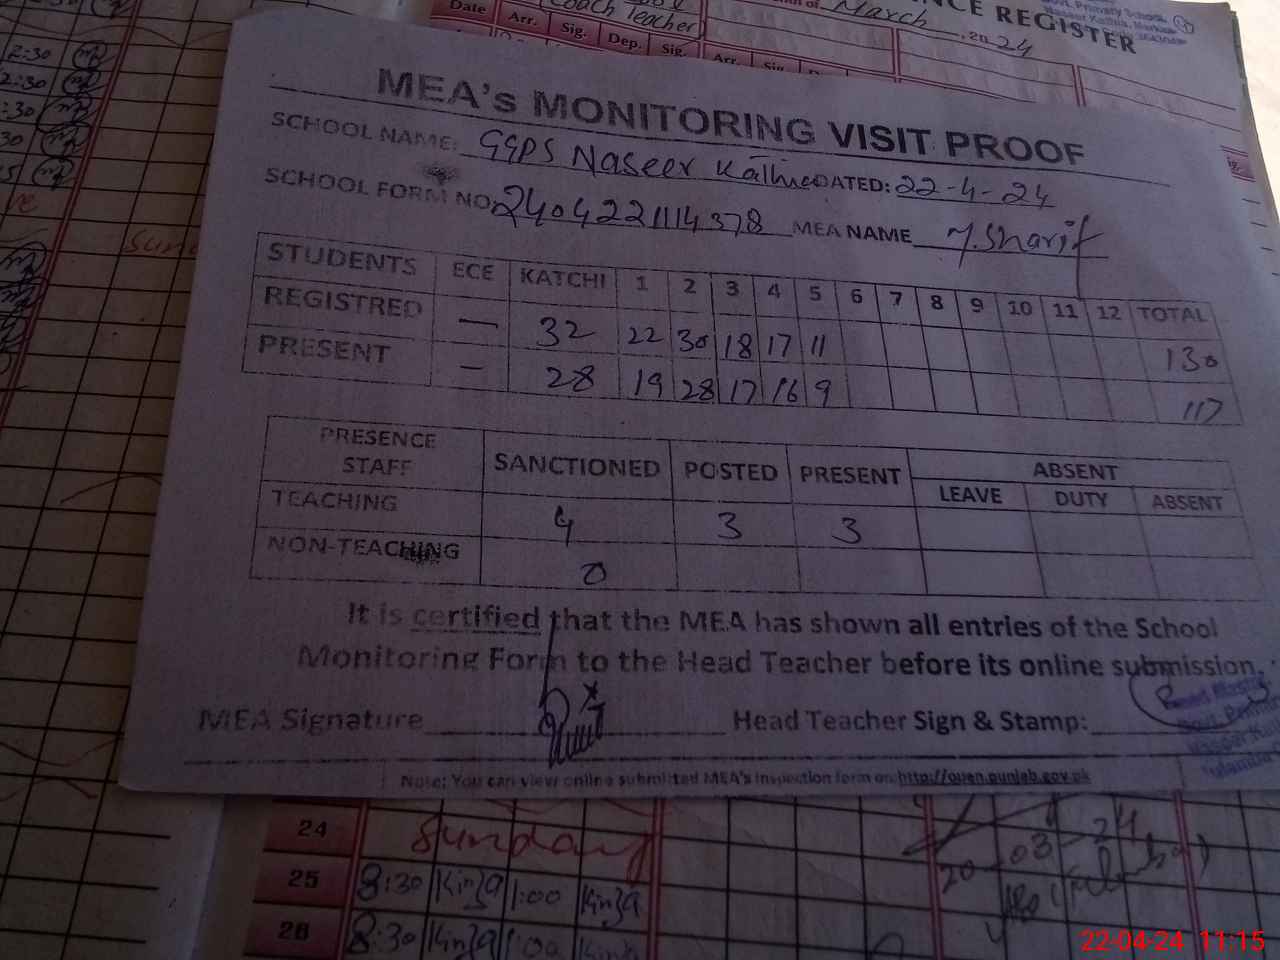 Date Arr. Sig. Dep. Sig. Arr.
Coach Teacher
March, 2024
REGISTER
2:30
2:30
:30
30
MEA's MONITORING VISIT PROOF
SCHOOL NAME: GGPS Naseer Kathia DATED: 22-4-24
SCHOOL FORM NO. 2404221114378 MEA NAME M. Sharif
STUDENTS ECE KATCHI 1 2 3 4 5 6 7 8 9 10 11 12 TOTAL
REGISTRED — 32 22 30 18 17 11 130
PRESENT — 28 19 28 17 16 9 117
PRESENCE STAFF SANCTIONED POSTED PRESENT ABSENT
LEAVE DUTY ABSENT
TEACHING 4 3 3
NON-TEACHING 0
It is certified that the MEA has shown all entries of the School
Monitoring Form to the Head Teacher before its online submission.
MEA Signature Head Teacher Sign & Stamp:
Note: You can view online submitted MEA's inspection form on: http://open.punjab.gov.pk
24 Sunday
25 8:30 Kinza 1:00 Kinza
26 8:30 Kinza 1:00 Kinza
20 03 24
22-04-24 11:15